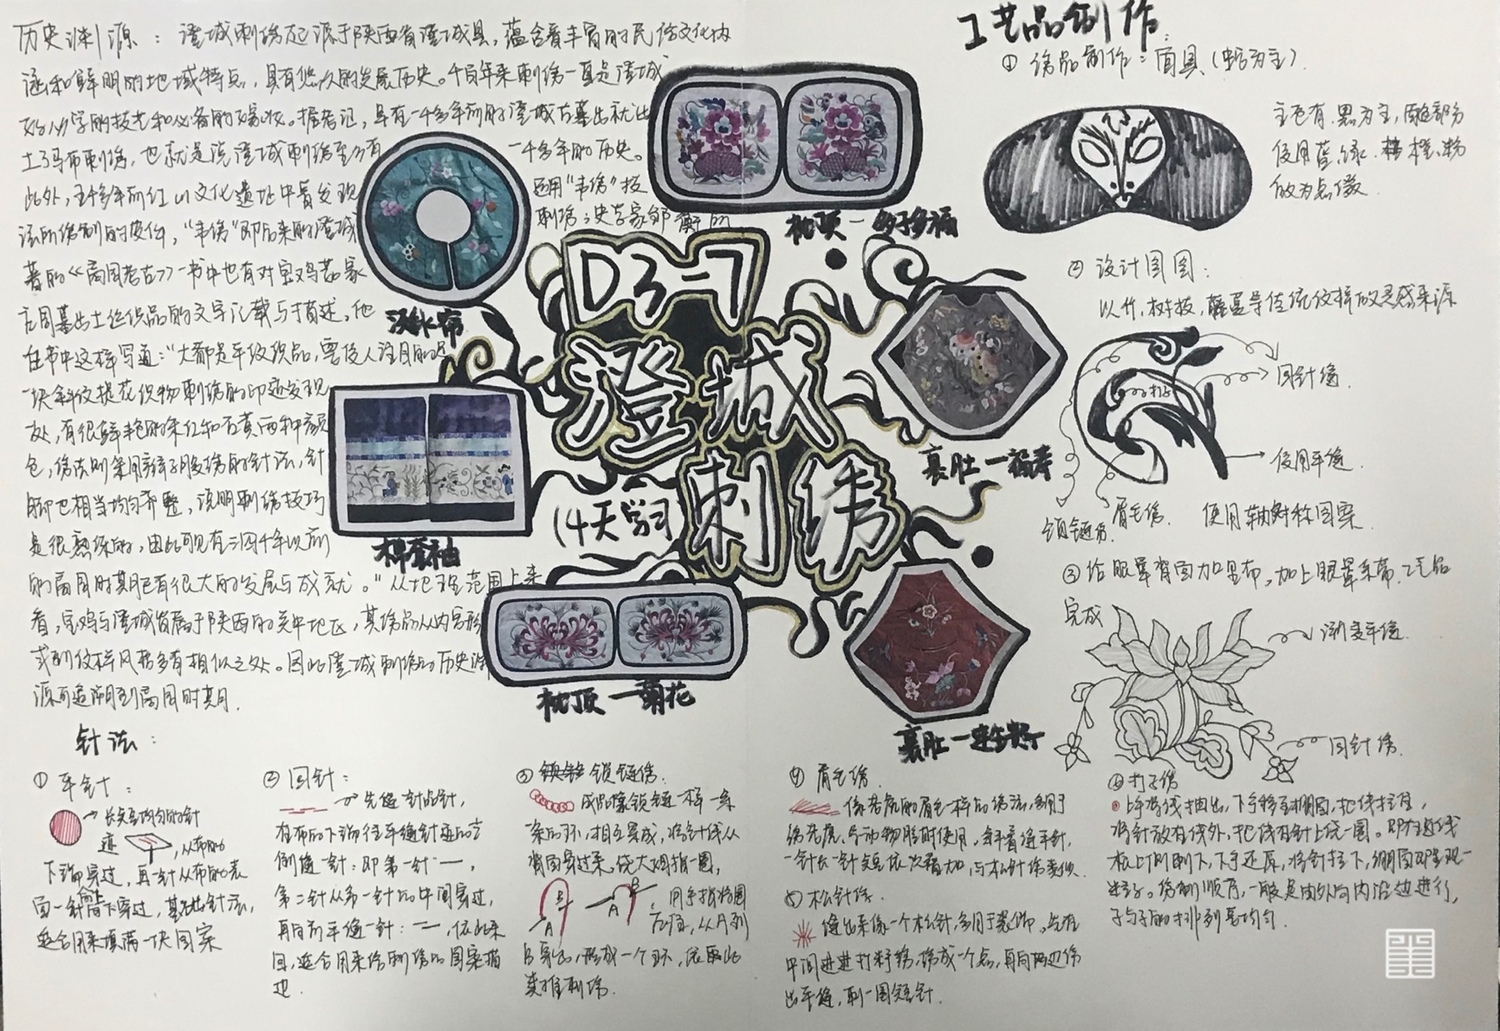 历史渊源：澄城刺绣起源于陕西省澄城县，蕴含着丰富的民俗文化内
涵和鲜明的地域特点，具有悠久的发展历史。千百年来刺绣一直是澄城
妇
必学的技艺和必备的嫁妆。据考记，早在一千多年前的澄城古墓出就出
土了马布刺绣，也就是说澄城刺绣至今有
一千多年的历史。
此外，
千多年前红山文化遗址中曾发现
运用“韦绣”技
法所绣制的
，“韦绣”即后来的澄城
刺绣；史学家邹衡所
著的《商周考古》一书中也有对宝鸡茹家
庄周墓出土丝织品的文字汇载与描述。他
在书中这样写道：“大都是平纹织品，要使人注目的是
一块斜纹提花织物刺绣的印迹发现
处，有很鲜艳的朱红和石黄两种颜
色，绣法则采用辫子股绣的针法，针
脚也相当均匀齐整，说明刺绣技巧
是很熟练的，由此可见有三四千年以前
的商周时期已有很大的发展与成就。”从地理范围上来
看，宝鸡与澄城皆属于陕西的关中地区，其绣品从内容形
式到纹样风格多有相似之处。因此澄城刺绣的历史渊
源可追溯到商周时期.
涎水布
枕顶一多子多福
棉套袖
裹肚一福寿
枕顶一菊花
裹肚一连生贵子
D3-7
澄城
刺绣
(4天学习)
工艺品制作：
① 绣品制作：面具（
为主）.
主色有.黑为主，
部分
使用蓝、绿、橙、粉
做为点缀.
② 设计图图：
以竹，树枝，藤蔓等传统纹样做灵感来源
回针绣.
打子
使用平绣.
锁链绣.
眉毛绣.
使用轴对称图案.
③ 给眼罩背面加里布，加上眼罩系带，工艺品
完成
渐变平绣.
回针绣.
针法：
① 平针：
长短均匀的针
迹
，从布的
下端穿过，再一针从布的表
面一针向下穿过，基础针法，
适合用来填满一块图案
② 回针：
先缝一针的针，
在布的下端往平缝针迹的方
倒缝一针：即第一针一，
第二针从第一针的中间穿过，
再向前平缝一针：一，依此来
回，适合用来绣刺绣的图案描
边.
③ 锁链绣.
成品像锁链一样一条
条的环，相互穿成，将针线从
背面穿过来，绕大拇指一圈，
A B A B
，用手指将圈
压住，从A到
B穿出，形成一个环，依照此
类推刺绣.
④ 眉毛绣.
像老虎的眉毛一样的绣法，多用于
绣老虎、等动物腿时使用，斜着缝平针，
一针长一针短依次叠加，与松针绣类似
⑤ 松针绣.
缝出来像一个松针，多用于装饰。先在
中间进进打籽绣，绣成一个点，再向两边绣
出平缝，刺一圈短针.
⑥ 打子绣
上手将线抽出，下手移至绷面，把线拉住，
将针放在线外，把线在针上绕一圈。即在近线
根上1.
刺下，下手还原，将针拉下，绷面即呈现一
粒子。绣制顺序，一般是由外向内沿边进行，
子与子的排列要均匀.